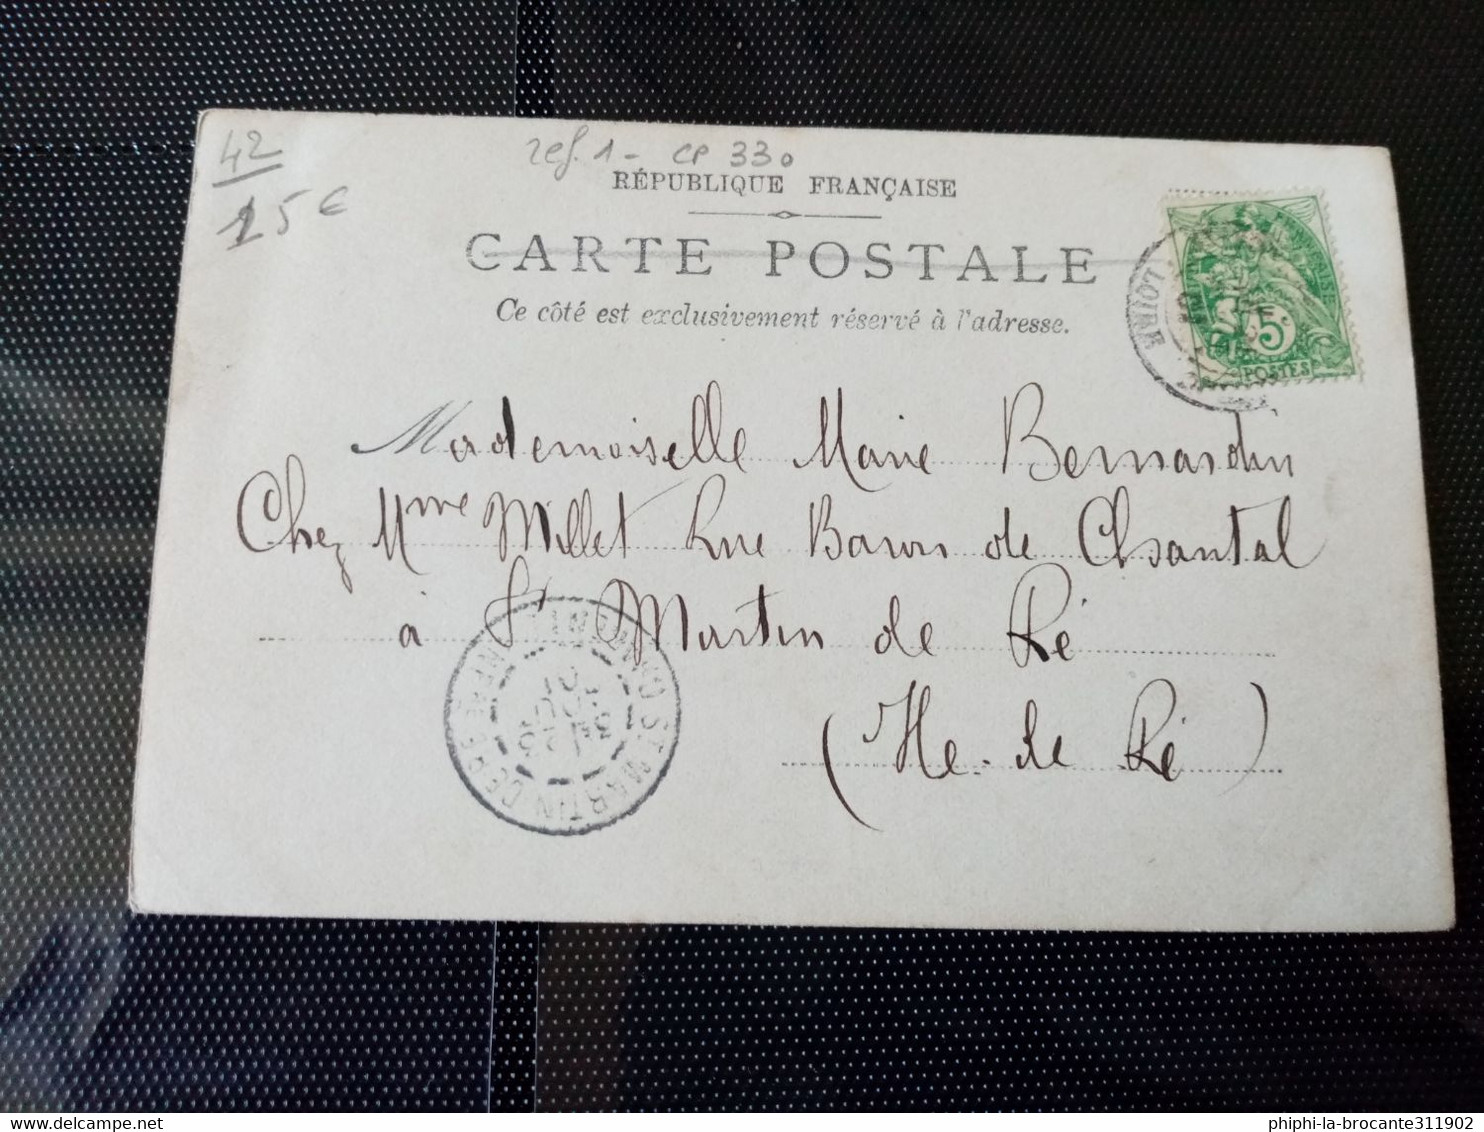 42
15 €
ref. 1 - CP 330
RÉPUBLIQUE FRANÇAISE
CARTE POSTALE
Ce côté est exclusivement réservé à l'adresse.
LOIRE
5
POSTES
Mademoiselle Marie Bernardin
Chez Mme Millet Rue Baron de Chantal
à St Martin de Ré
(Ile de Ré)
ST MARTIN DE RE
phiphi-la-brocante311902